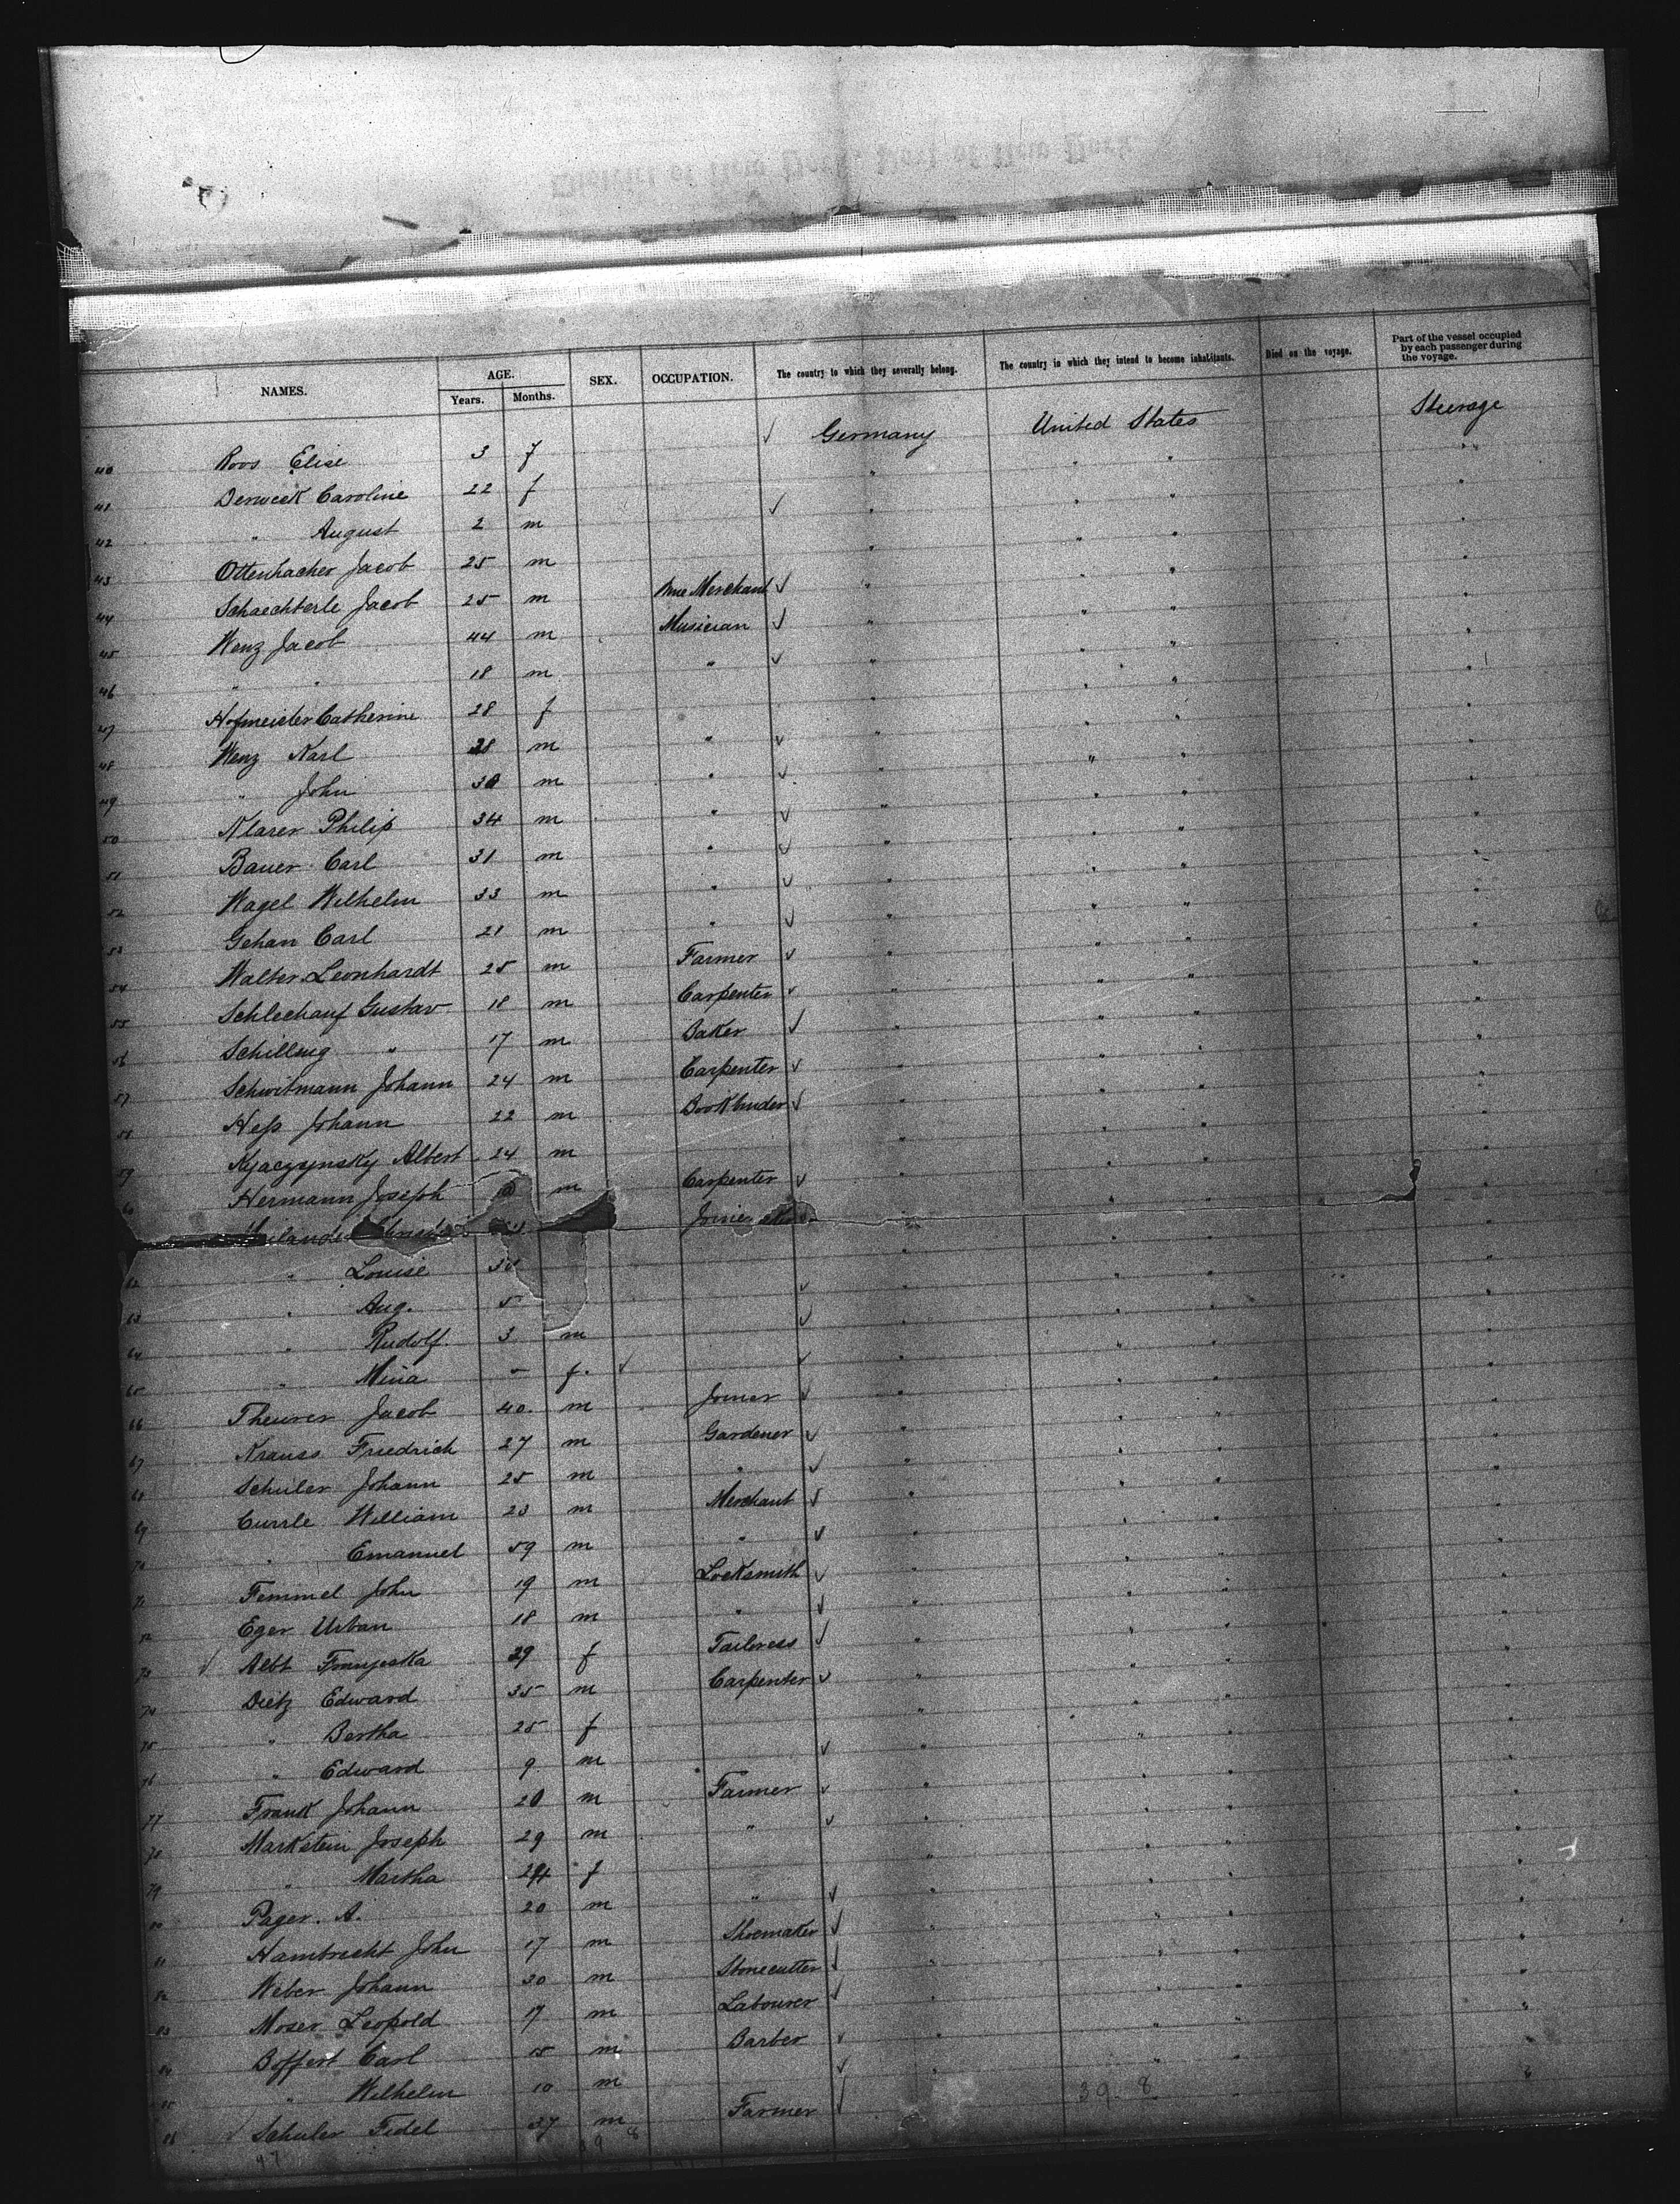 NAMES. AGE. SEX. OCCUPATION. The country to which they severally belong. The country in which they intend to become inhabitants. Died on the voyage. Part of the vessel occupied by each passenger during the voyage.
Years. Months.
40 Roos Elise 3 f Germany United States Steerage
41 Derweek Caroline 22 f " " " "
42 " August 2 m " " " "
43 Ottenbacher Jacob 25 m " " " "
44 Schaechterle Jacob 25 m Merchant " " " "
45 Wenz Jacob 44 m Musician " " " "
46 " " 18 m " " " " "
47 Hofmeister Catherine 28 f " " " "
48 Wenz Karl 38 m " " " " "
49 " John 30 m " " " " "
50 Klarer Philip 34 m " " " " "
51 Bauer Carl 31 m " " " " "
52 Wagel Wilhelm 33 m " " " " "
53 Gehan Carl 21 m " " " " "
54 Walter Leonhardt 25 m Farmer " " " "
55 Schlechauf Gustav 18 m Carpenter " " " "
56 Schilling " 17 m Baker " " " "
57 Schwitmann Johann 24 m Carpenter " " " "
58 Hess Johann 22 m Bookbinder " " " "
59 Albert 24 m " " " "
60 Hermann Joseph m Carpenter " " " "
62 " Louise " " " "
63 " Aug. 5 " " " "
64 " Rudolf 3 m " " " "
65 " Mina - f. " " " "
66 Theurer Jacob 40 m Joiner " " " "
67 Krauss Friedrich 27 m Gardener " " " "
68 Schuler Johann 25 m " " " " "
69 Currle William 23 m Merchant " " " "
70 " Emanuel 59 m " " " " "
71 Femmel John 19 m Locksmith " " " "
72 Eger Urban 18 m " " " " "
73 Albt Franzeska 29 f Tailoress " " " "
74 Dietz Edward 35 m Carpenter " " " "
75 " Bertha 25 f " " " "
76 " Edward 9 m " " " "
77 Frank Johann 20 m Farmer " " " "
78 Markstein Joseph 29 m " " " " "
79 " Martha 24 f " " " "
80 Pager. A. 20 m " " " " "
81 Hambrecht John 17 m Shoemaker " " " "
82 Weber Johann 30 m Stonecutter " " " "
83 Moser Leopold 17 m Labourer " " " "
84 Boffert Carl 15 m Barber " " " "
85 " Wilhelm 10 m " " " "
86 Schuler Fidel 37 m Farmer " " " "
39-8
47 39 8